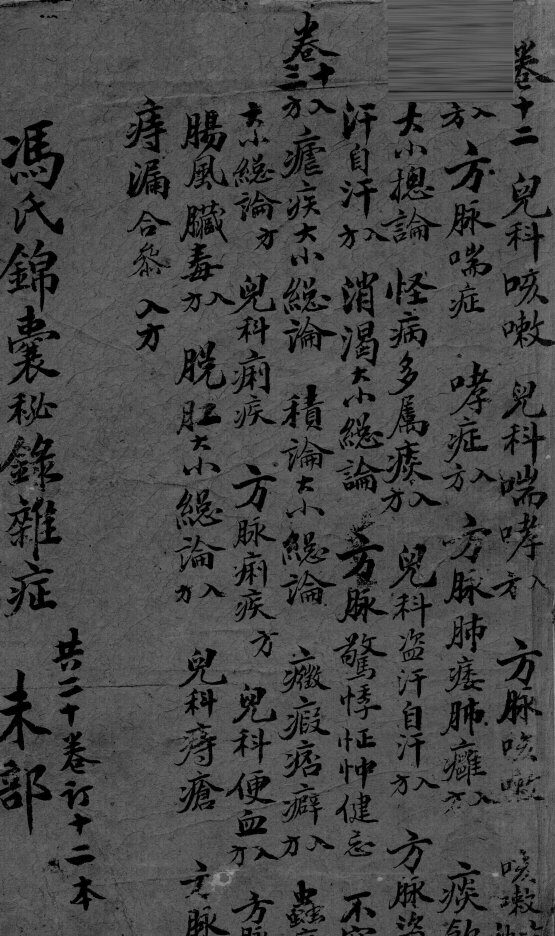 卷十二 兒科咳嗽 兒科喘哮入方 方脉咳嗽 咳嗽
入方 方脉喘症 哮症入方 方脉肺痿肺癰入方 痰飲
大小摠論 怪病多属痰入方 兒科盗汗自汗入方 方脉盗
汗自汗入方 消渴大小縂論 方脉驚悸怔忡健忘 不
卷十三 入方 瘧疾大小縂論 積論大小縂論 癥瘕痞癖入方 蟲
大小縂論方 兒科痢疾 方脉痢疾方 兒科便血入方 方脉
腸風臟毒入方 脱肛大小縂論入方 兒科痔瘡 方脉
痔漏合叅入方
共二十卷订十二本
馮氏錦囊秘錄雜症 未部